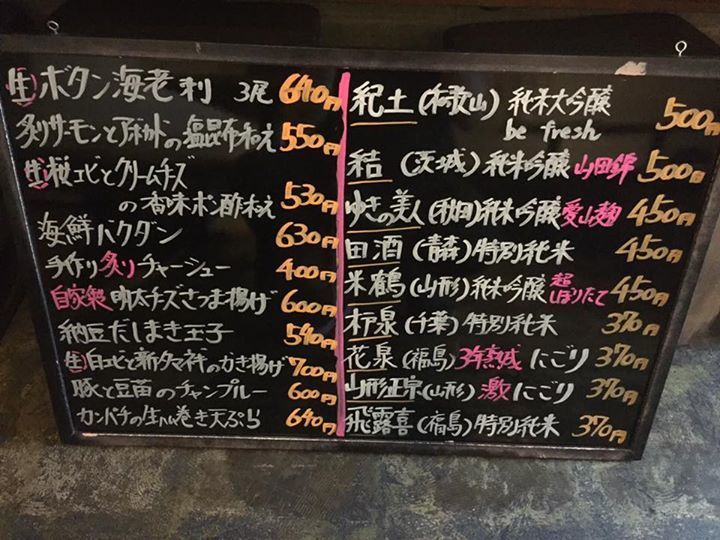 生ボタン海老刺 3尾 640円
炙りサーモンとアボカドの塩昆布和え 550円
生桜エビとクリームチーズ
の香味ポン酢和え 530円
海鮮バクダン 630円
手作り炙りチャーシュー 400円
自家製明太チーズさつま揚げ 600円
納豆だしまき玉子 540円
生白エビと新タマネギのかき揚げ 700円
豚と豆苗のチャンプルー 600円
カンパチの生ハム巻き天ぷら 640円
紀土(和歌山)純米大吟醸 500円
be fresh
結(茨城)純米吟醸 山田錦 500円
ゆきの美人(秋田)純米吟醸 愛山麹 450円
田酒(青森)特別純米 450円
米鶴(山形)純米吟醸 超しぼりたて 450円
泉(千葉)特別純米 370円
花泉(福島)3年熟成にごり 370円
山形正宗(山形)激にごり 370円
飛露喜(福島)特別純米 370円